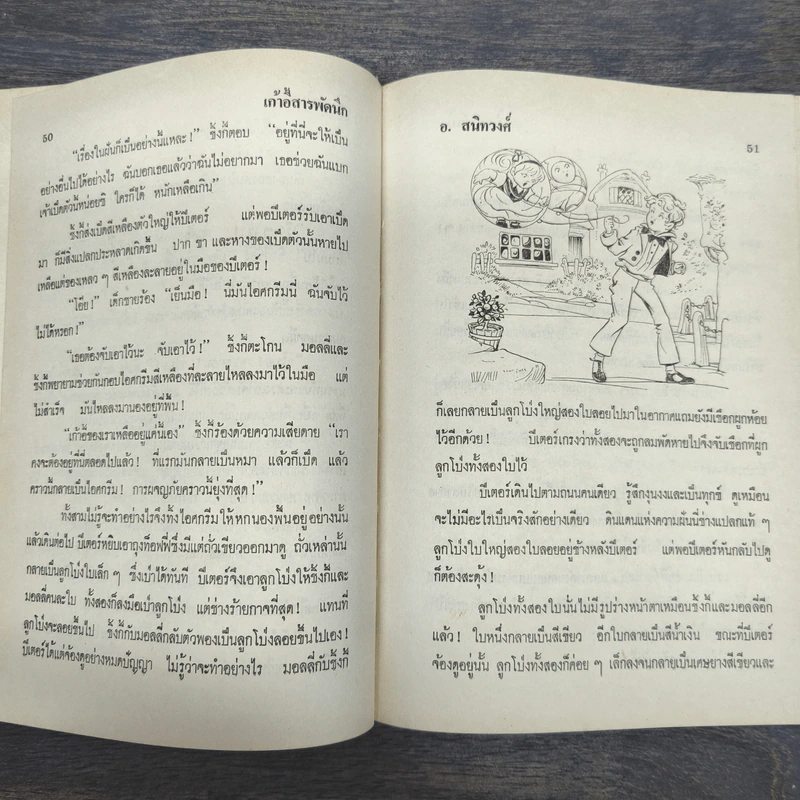 50
เก้าอี้สารพัดนึก
"เรื่องในฝันก็เป็นอย่างนี้แหละ!" ชิ้งกี้ตอบ "อยู่ที่นี่จะให้เป็น
อย่างอื่นไปได้อย่างไร ฉันบอกเธอแล้วว่าฉันไม่อยากมา เธอช่วยฉันแบก
เจ้าเป็ดตัวนี้หน่อยซิ ใครก็ได้ หนักเหลือเกิน"
ชิ้งกี้ส่งเป็ดสีเหลืองตัวใหญ่ให้ปีเตอร์ แต่พอปีเตอร์รับเอาเป็ด
มา ก็มีสิ่งแปลกประหลาดเกิดขึ้น ปาก ขา และหางของเป็ดตัวนั้นหายไป
เหลือแต่ของเหลว ๆ สีเหลืองละลายอยู่ในมือของปีเตอร์!
"โอ๊ย!" เด็กชายร้อง "เย็นมือ! นี่มันไอศกรีมนี่ ฉันจับไว้
ไม่ได้หรอก!"
"เธอต้องจับเอาไว้นะ จับเอาไว้!" ชิ้งกี้ตะโกน มอลลี่และ
ชิ้งกี้พยายามช่วยกันกอบไอศกรีมสีเหลืองที่ละลายไหลลงมาไว้ในมือ แต่
ไม่สำเร็จ มันไหลลงมานองอยู่ที่พื้น!
"เก้าอี้ของเราเหลืออยู่แค่นี้เอง" ชิ้งกี้ร้องด้วยความเสียดาย "เรา
คงจะต้องอยู่ที่นี่ตลอดไปแล้ว! ที่แรกมันกลายเป็นหมา แล้วก็เป็ด แล้ว
คราวนี้กลายเป็นไอศกรีม! การผจญภัยคราวนี้ยุ่งที่สุด!"
ทั้งสามไม่รู้จะทำอย่างไรจึงทิ้งไอศกรีมให้หกนองพื้นอยู่อย่างนั้น
แล้วเดินต่อไป ปีเตอร์หยิบเอาถุงท็อฟฟี่ซึ่งมีแต่ถั่วเขียวออกมาดู ถั่วเหล่านั้น
กลายเป็นลูกโป่งใบเล็ก ๆ ซึ่งเป่าได้ทันที ปีเตอร์จึงเอาลูกโป่งให้ชิ้งกี้และ
มอลลี่คนละใบ ทั้งสองก็ลงมือเป่าลูกโป่ง แต่ช่างร้ายกาจที่สุด! แทนที่
ลูกโป่งจะลอยขึ้นไป ชิ้งกี้กับมอลลี่กลับตัวพองเป็นลูกโป่งลอยขึ้นไปเอง!
ปีเตอร์ได้แต่จ้องดูอย่างหมดปัญญา ไม่รู้ว่าจะทำอย่างไร มอลลี่กับชิ้งกี้
อ. สนิทวงศ์
51
ก็เลยกลายเป็นลูกโป่งใหญ่สองใบลอยไปมาในอากาศแถมยังมีเชือกผูกห้อย
ไว้อีกด้วย! ปีเตอร์เกรงว่าทั้งสองจะถูกลมพัดหายไปจึงจับเชือกที่ผูก
ลูกโป่งทั้งสองใบไว้
ปีเตอร์เดินไปตามถนนคนเดียว รู้สึกงุนงงและเป็นทุกข์ ดูเหมือน
จะไม่มีอะไรเป็นจริงสักอย่างเดียว ดินแดนแห่งความฝันนี่ช่างแปลกแท้ ๆ
ลูกโป่งใบใหญ่สองใบลอยอยู่ข้างหลังปีเตอร์ แต่พอปีเตอร์หันกลับไปดู
ก็ต้องสะดุ้ง!
ลูกโป่งทั้งสองใบนั้นไม่มีรูปร่างหน้าตาเหมือนชิ้งกี้และมอลลี่อีก
แล้ว! ใบหนึ่งกลายเป็นสีเขียว อีกใบกลายเป็นสีน้ำเงิน ขณะที่ปีเตอร์
จ้องดูอยู่นั้น ลูกโป่งทั้งสองก็ค่อย ๆ เล็กลงจนกลายเป็นเศษยางสีเขียวและ